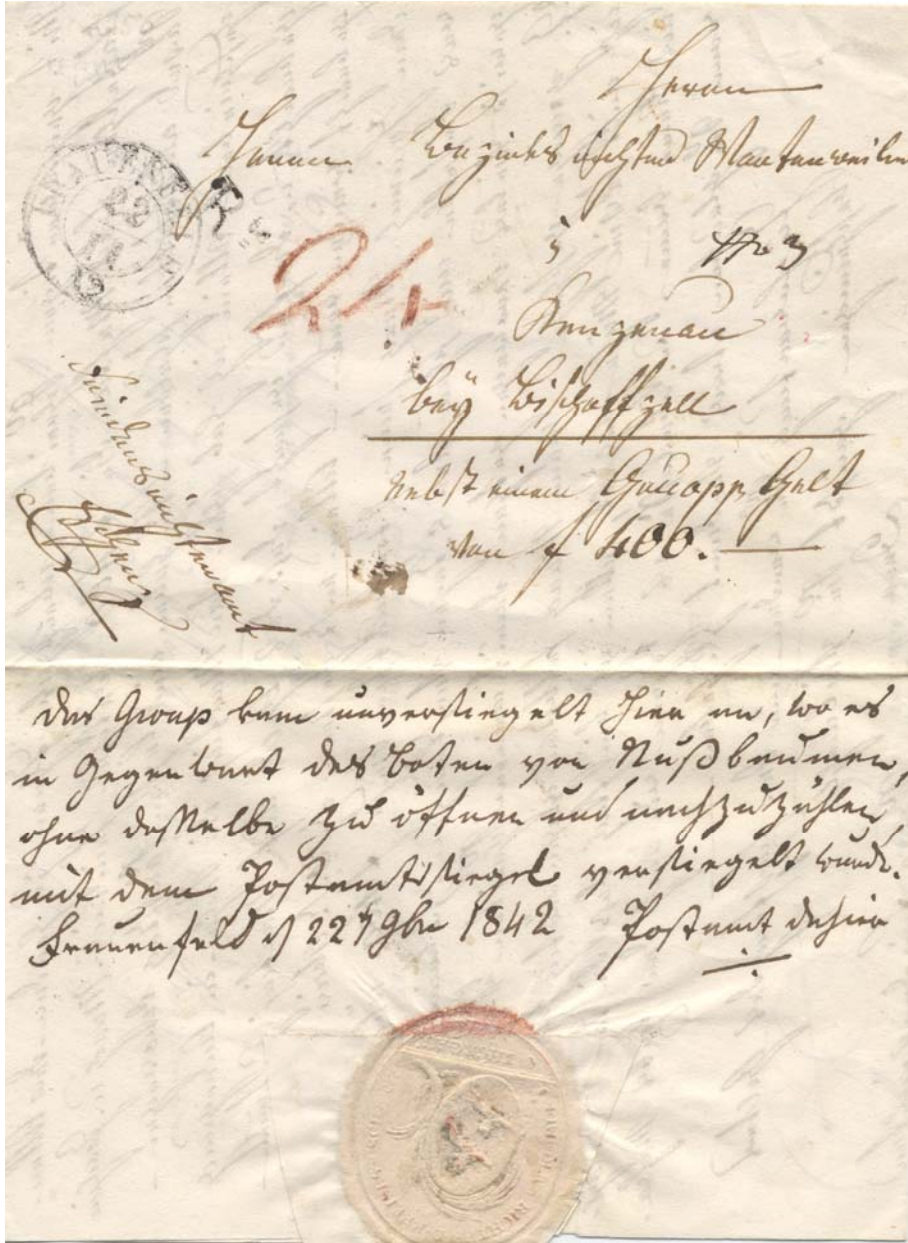 Herrn
Herrn Bezirksrichter Wartenweiler
No 3
Kenzenau
bey Bischoffzell
nebst einem Group Gelt
von f 400.—
FRAUENFELD
22
11
42
R.
24
Friedensrichteramt
Das Group kam unversiegelt hier an, wo es
in Gegenwart des Boten von Nußbaumen,
ohne dasselbe zu öffnen und nachzuzählen,
mit dem Postamtssiegel versiegelt wurde.
Frauenfeld d 22t 9bre 1842 Postamt dahier